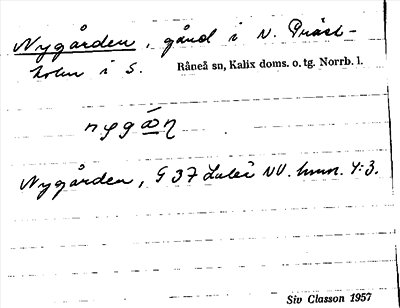 Nygården, gård i N. Präst-
holm i S. Råneå sn, Kalix doms. o. tg. Norrb. l.
Nygården, G 37 Luleå NV. hmn. 4:3.
Siv Classon 1957